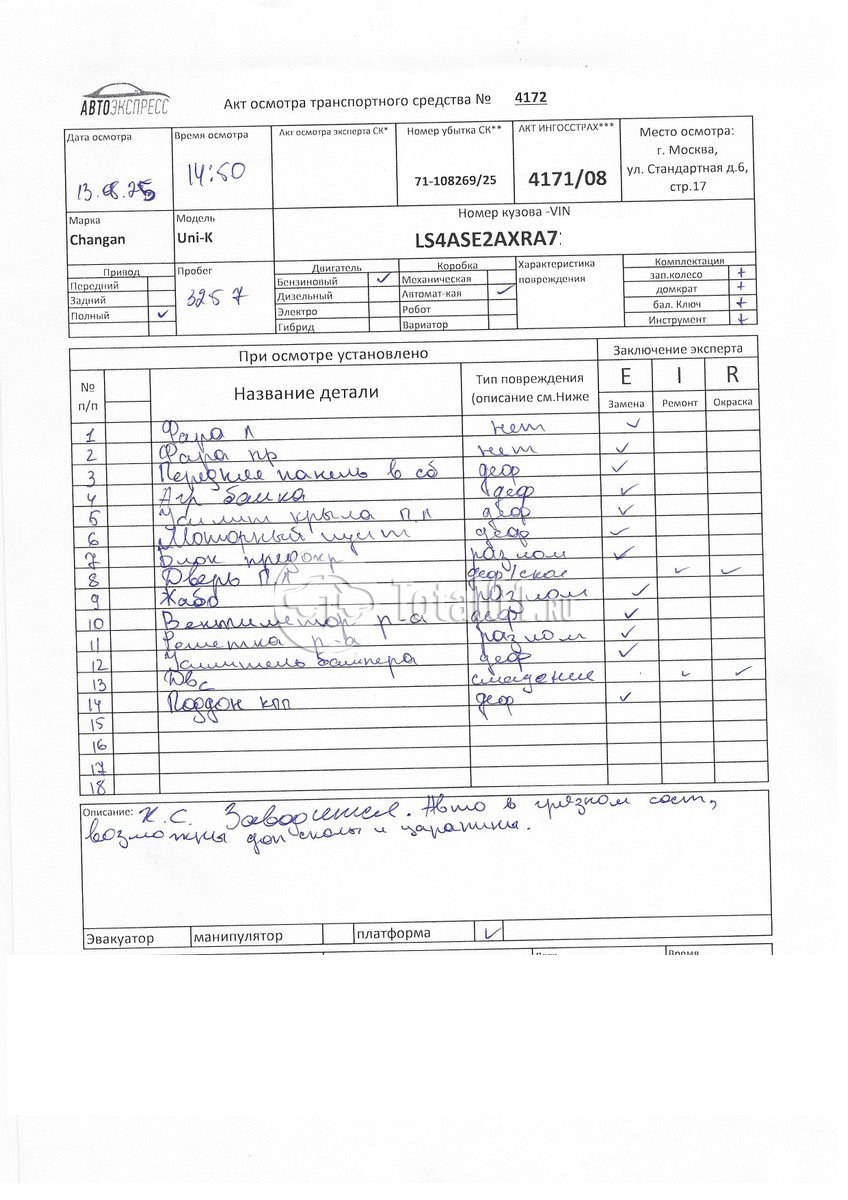 АВТОЭКСПРЕСС
Акт осмотра транспортного средства № 4172
Дата осмотра
13.
Время осмотра
14:50
Акт осмотра эксперта СК*
Номер убытка СК**
71-108269/25
АКТ ИНГОССТРАХ***
4171/08
Место осмотра:
г. Москва,
ул. Стандартная д.6,
стр.17
Марка
Changan
Модель
Uni-K
Номер кузова -VIN
LS4ASE2AXRA7
Привод
Передний
Задний
Полный ✓
Пробег
3257
Двигатель
Бензиновый ✓
Дизельный
Электро
Гибрид
Коробка
Механическая
Автомат-кая ✓
Робот
Вариатор
Характеристика
повреждения
Комплектация
зап.колесо +
домкрат +
бал. Ключ +
Инструмент +
При осмотре установлено
Заключение эксперта
№
п/п
Название детали
Тип повреждения
(описание см.Ниже
E I R
Замена Ремонт Окраска
1 Фара л нет ✓
2 Фара пр нет ✓
3 панель в сб деф ✓
4 деф ✓
5 крыла п.л деф ✓
6 Моторный щит деф ✓
7 Блок предохр разлом ✓
8 Дверь п л деф/скол ✓ ✓
9 Жабо разлом ✓
10 р-а деф ✓
11 Решетка р-а разлом ✓
12 Усилитель бампера деф ✓
13 ДВС смещение ✓ ✓
14 Поддон кпп деф ✓
15
16
17
18
TotalOut.RU
Описание: Н.С. Заводится. Авто в грязном сост,
возможны доп сколы и царапины.
Эвакуатор манипулятор платформа ✓
Время